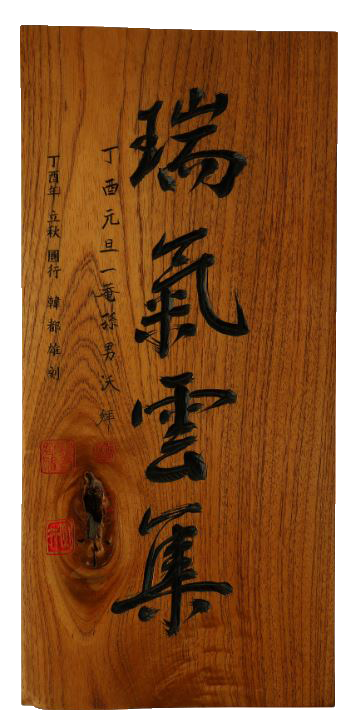 瑞氣雲集
丁酉元旦一菴孫男沃拜
丁酉年 立秋 圓行 韓都雄刻